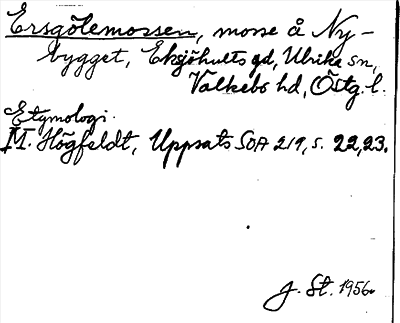 Ersgölemossen, mosse å Ny-
bygget, Eksjöhults gd, Ulrika sn,
Valkebo hd, Östg. l.
Etymologi.
M. Högfeldt, Uppsats SOA 219, s. 22, 23.
J. St. 1956.